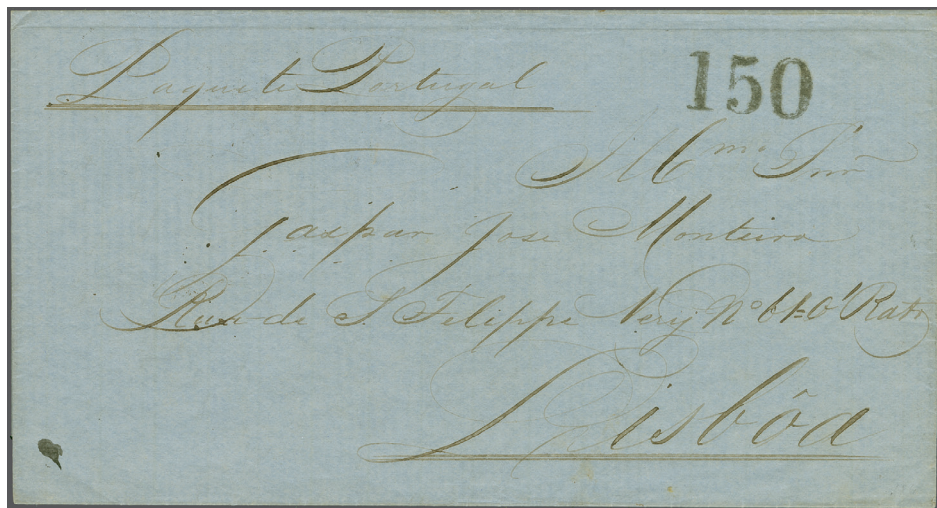 Paquete Portugal
150
Illmo Snr
Gaspar Jose Monteiro
Rua de S. Filippe Nery No 61 = Rato
Lisbôa